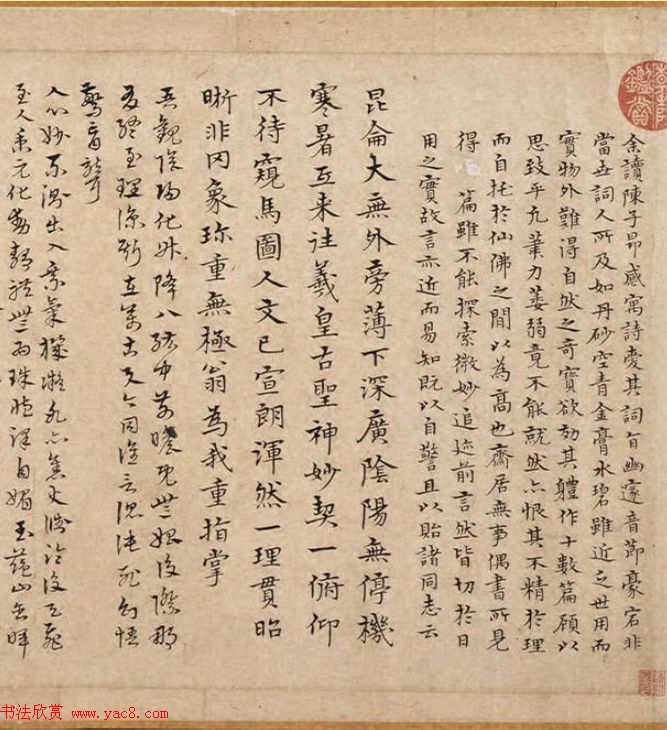 余讀陳子昂感寓詩愛其詞旨幽邃音節豪宕非
當世詞人所及如丹砂空青金膏水碧雖近乏世用而
實物外難得自然之奇寶欲効其軆作十數篇顧以
思致平凢筆力萎弱竟不能就然亦恨其不精於理
而自托於仙佛之間以為高也齋居無事偶書所見
得 篇雖不能探索微妙追迹前言然皆切於日
用之實故言亦近而易知既以自警且以貽諸同志云
昆侖大無外旁薄下深廣陰陽無停機
寒暑互来往羲皇古聖神妙契一俯仰
不待窺馬圖人文已宣朗渾然一理貫昭
晣非罔象珍重無極翁為我重指掌
吾觀陰陽化升降八紘中前瞻既無始後際那
有終至理諒斯在萬古與今同誰言混沌死幻語
驚盲聾
人心妙不測出入乘氣機凝氷亦焦火淵淪復天飛
至人秉元化動靜體無為珠藏澤自媚玉蘊山含暉
鑑賞
书法欣赏 www.yac8.com